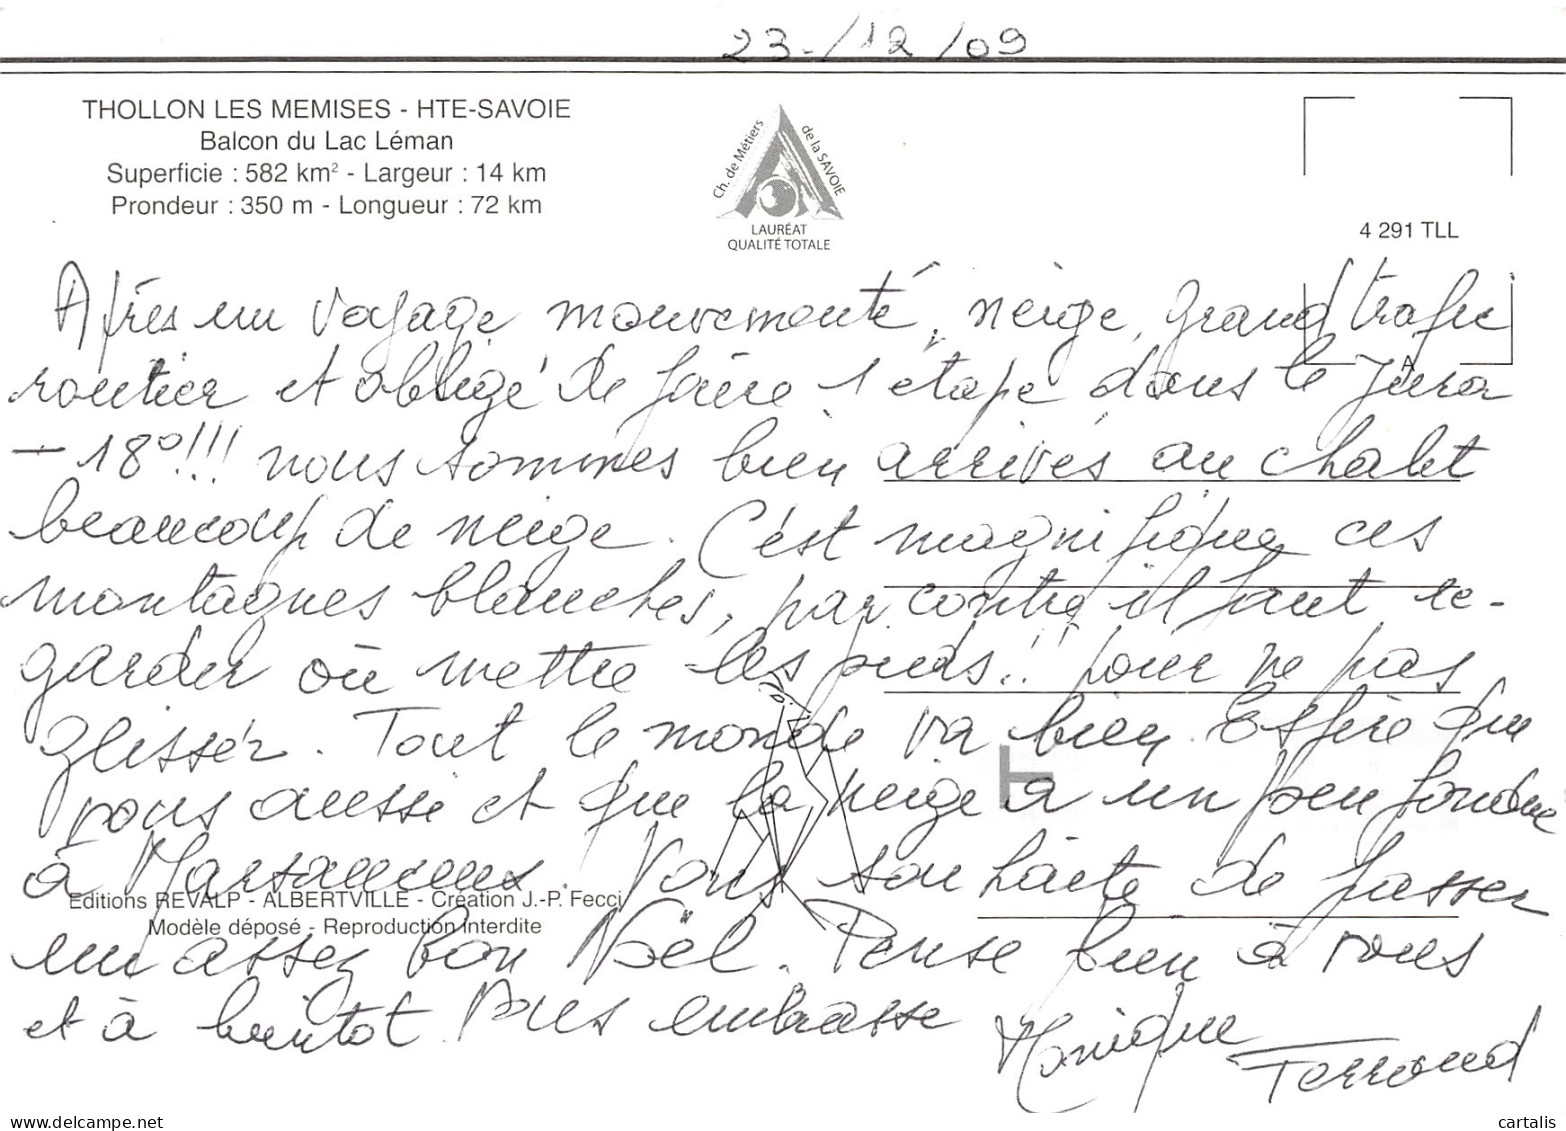 23-/12/09
THOLLON LES MEMISES - HTE-SAVOIE
Balcon du Lac Léman
Superficie : 582 km² - Largeur : 14 km
Prondeur : 350 m - Longueur : 72 km
Ch. de Métiers de la SAVOIE
LAURÉAT
QUALITÉ TOTALE
4 291 TLL
Après un voyage mouvementé, neige, grand trafic
routier et obligé de faire 1 étape dans le Jura
- 18°!!! nous sommes bien arrivés au chalet
beaucoup de neige. C'est magnifique ces
montagnes blanches, par contre il faut re-
garder où mettre les pieds!! pour ne pas
glisser. Tout le monde va bien. Espère que
vous aussi et que la neige a un peu fondue
à Vous souhaite de passer
Editions REVALP - ALBERTVILLE - Création J.-P. Fecci
Modèle déposé - Reproduction interdite
un assez bon Noël. Pense bien à vous
et à bientôt. Vous embrasse
Monique
Terrond
www.delcampe.net
cartalis